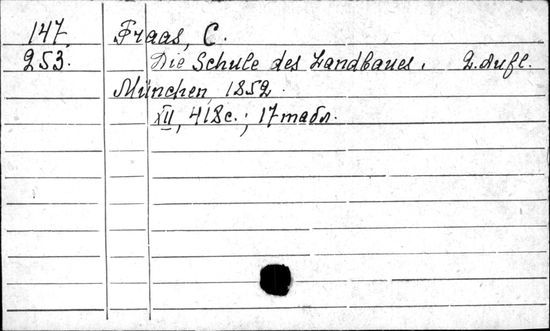 147. Fraas, C.
253. Die Schule des Landbaues. 2. Aufl.
München, 1852.
XII, 418 с.; 17 табл.